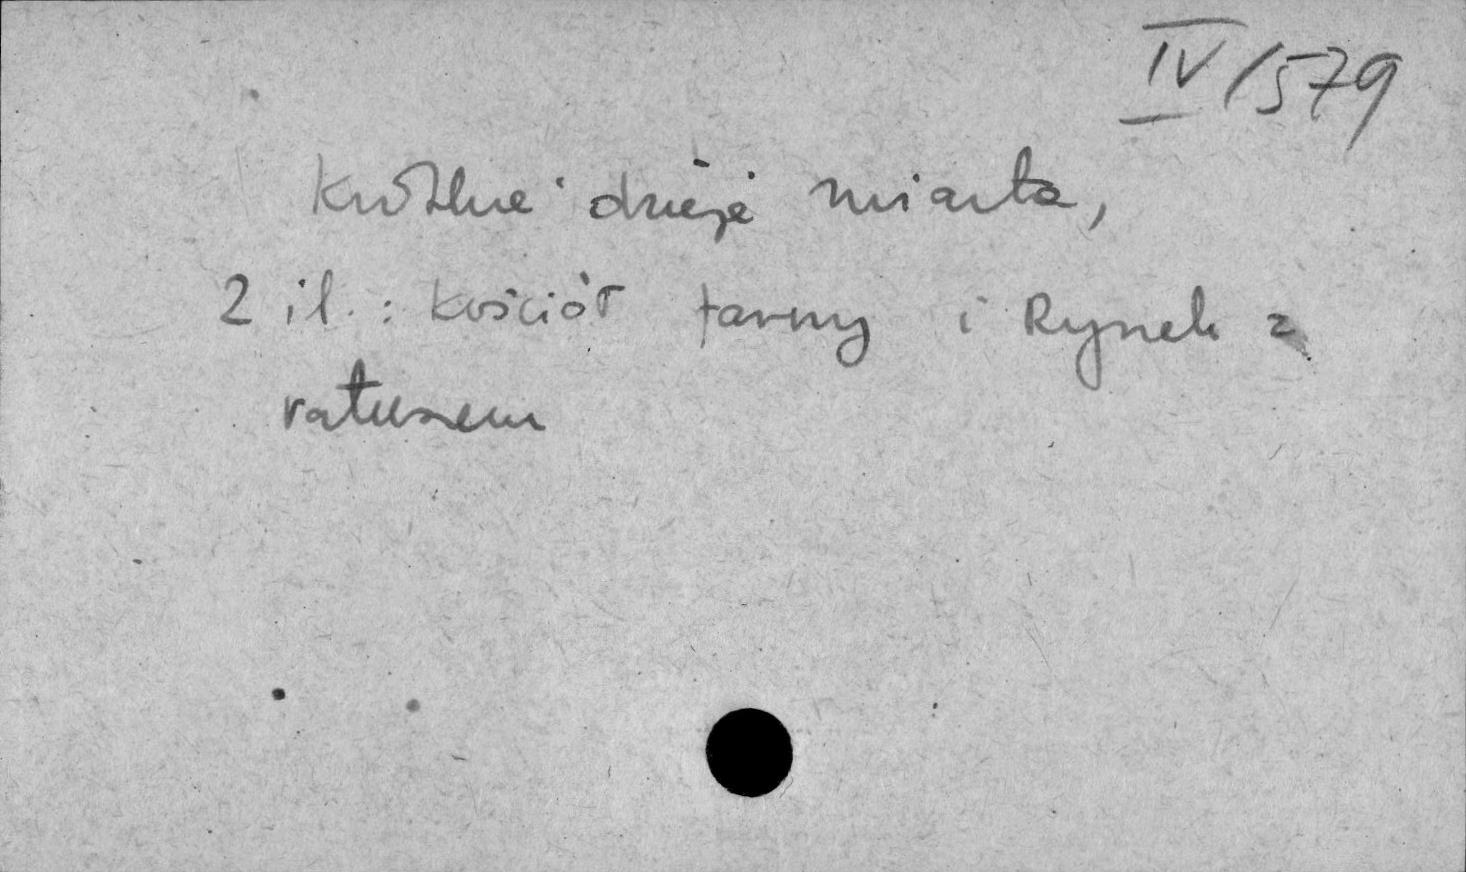 IV/579
Krótkie dzieje miasta,
2 il.: Kościół farny i Rynek z
ratuszem